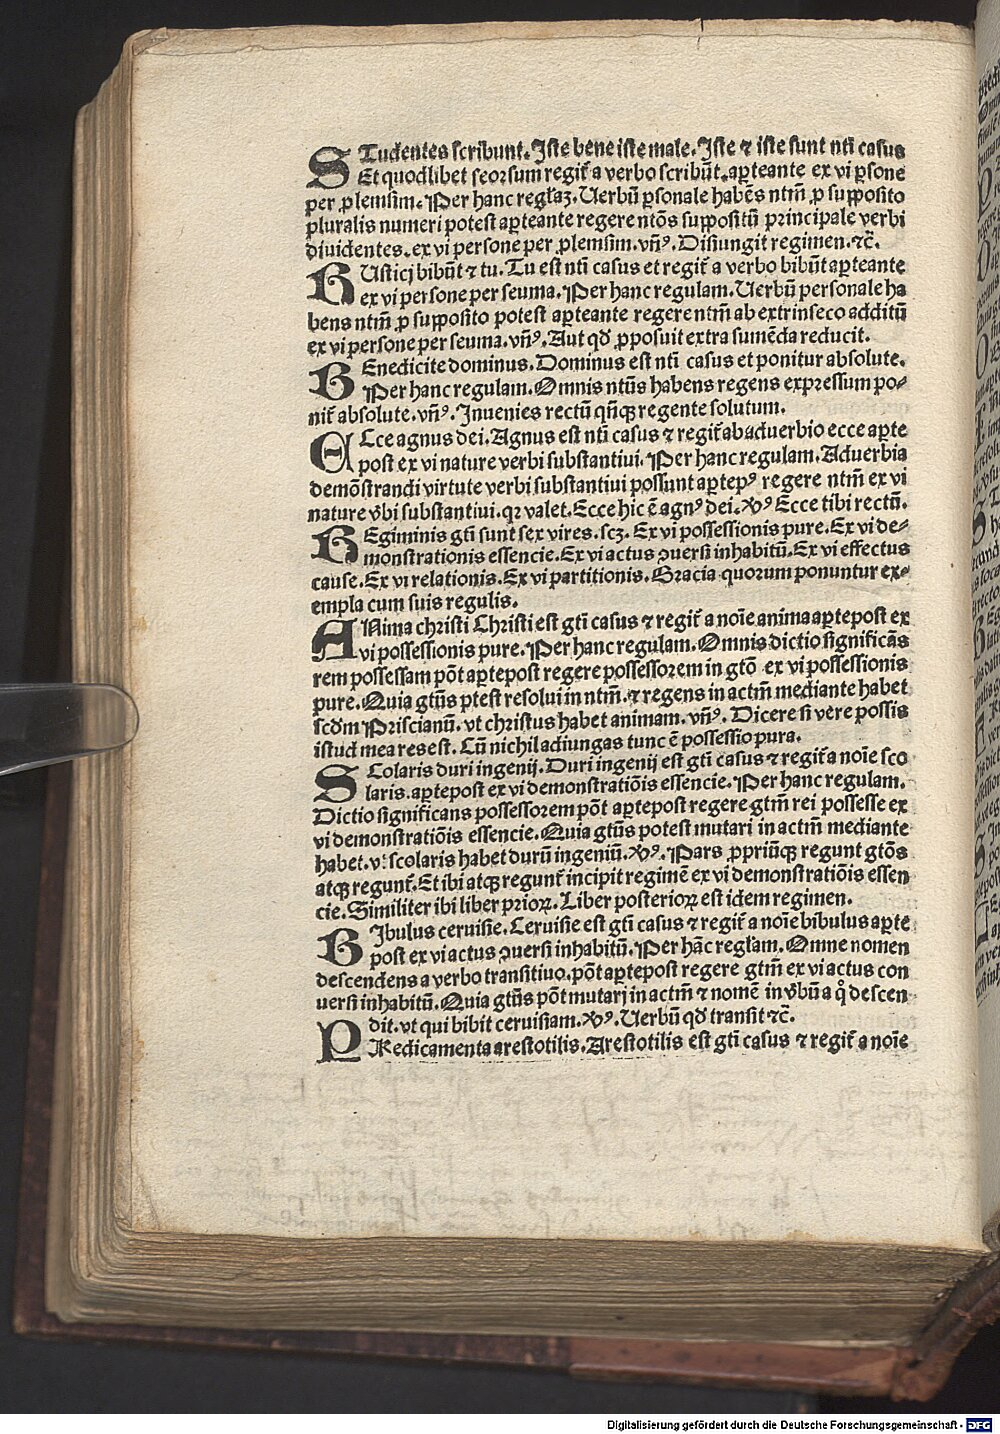 STudentes scribunt. Iste bene iste male. Iste ⁊ iste sunt nti casus
Et quodlibet seorsum regit᷑ a verbo scribūt. aꝑteante ex vi ꝑsone
per ꝓlemsim. Per hanc regłaꝫ. Uerbū ꝑsonale habēs ntm̄ ꝓ supposito
pluralis numeri potest aꝑteante regere ntōs suppositū principale verbi
diuidentes. ex vi persone per ꝓlemsim. vn̄ꝰ. Disiungit regimen. ⁊c̄.
RUsticj bibūt ⁊ tu. Tu est nti casus et regit᷑ a verbo bibūt aꝑteante
ex vi persone per seuma. Per hanc regulam. Uerbū personale ha
bens ntm̄ ꝓ supposito potest aꝑteante regere ntm̄ ab extrinseco additū
ex vi persone per seuma. vn̄ꝰ. Aut qd̄ ꝓposuit extra sumēda reducit.
BEnedicite dominus. Dominus est nti casus et ponitur absolute.
Per hanc regulam. Omnis ntūs habens regens expressum po⸗
nit᷑ absolute. vn̄ꝰ. Inuenies rectū qn̄qꝫ regente solutum.
ECce agnus dei. Agnus est nti casus ⁊ regit᷑ ab aduerbio ecce aꝑte
post ex vi nature verbi substantiui. Per hanc regulam. Aduerbia
demōstrandi virtute verbi substantiui possunt aꝑtepꝰ regere ntm̄ ex vi
nature v̄bi substantiui. qr valet. Ecce hic ē agnꝰ dei. Xꝰ Ecce tibi rectū.
REgiminis gti sunt sex vires. scꝫ. Ex vi possessionis pure. Ex vi de⸗
monstrationis essencie. Ex vi actus ꝯuersi inhabitū. Ex vi effectus
cause. Ex vi relationis. Ex vi partitionis. Gracia quorum ponuntur ex⸗
empla cum suis regulis.
ANima christi Christi est gti casus ⁊ regit᷑ a noīe anima aꝑtepost ex
vi possessionis pure. Per hanc regulam. Omnis dictio significās
rem possessam pōt aꝑtepost regere possessorem in gtō ex vi possessionis
pure. Quia gtūs ptest resolui in ntm̄. ⁊ regens in actm̄ mediante habet
scdm Priscianū. vt christus habet animam. vn̄ꝰ. Dicere si vere possis
istud mea res est. Cū nichil adiungas tunc ē possessio pura.
SColaris duri ingenij. Duri ingenij est gti casus ⁊ regit᷑ a noīe sco
laris. aꝑtepost ex vi demonstratiōis essencie. Per hanc regulam.
Dictio significans possessorem pōt aꝑtepost regere gtm̄ rei possesse ex
vi demonstratiōis essencie. Quia gtūs potest mutari in actm̄ mediante
habet. vt scolaris habet durū ingeniū. Xꝰ. Pars ꝓpriūqꝫ regunt gtōs
atqꝫ regunt᷑. Et ibi atqꝫ regunt᷑ incipit regimē ex vi demonstratiōis essen
cie. Similiter ibi liber prioꝝ. Liber posterioꝝ est idem regimen.
BIbulus ceruisie. Ceruisie est gti casus ⁊ regit᷑ a noīe bibulus aꝑte
post ex vi actus ꝯuersi inhabitū. Per hāc regłam. Omne nomen
descendens a verbo transitiuo. pōt aꝑtepost regere gtm̄ ex vi actus con
uersi inhabitū. Quia gtūs pōt mutarj in actm̄ ⁊ nomē in v̄bū a qͦ descen
dit. vt qui bibit ceruisiam. Xꝰ. Uerbū qd̄ transit ⁊c̄.
PRedicamenta arestotilis. Arestotilis est gti casus ⁊ regit᷑ a noīe
Digitalisierung gefördert durch die Deutsche Forschungsgemeinschaft - DFG